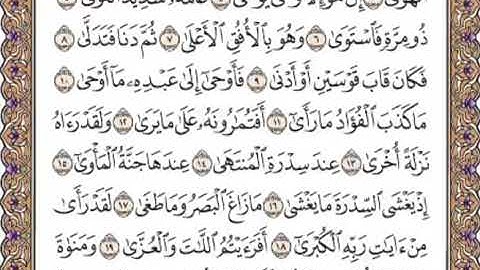 ذُو مِرَّةٍ فَٱسْتَوَىٰ ٦ وَهُوَ بِٱلْأُفُقِ ٱلْأَعْلَىٰ ٧ ثُمَّ دَنَا فَتَدَلَّىٰ ٨
فَكَانَ قَابَ قَوْسَيْنِ أَوْ أَدْنَىٰ ٩ فَأَوْحَىٰٓ إِلَىٰ عَبْدِهِۦ مَآ أَوْحَىٰ ١٠
مَا كَذَبَ ٱلْفُؤَادُ مَا رَأَىٰٓ ١١ أَفَتُمَٰرُونَهُۥ عَلَىٰ مَا يَرَىٰ ١٢ وَلَقَدْ رَءَاهُ
نَزْلَةً أُخْرَىٰ ١٣ عِندَ سِدْرَةِ ٱلْمُنتَهَىٰ ١٤ عِندَهَا جَنَّةُ ٱلْمَأْوَىٰٓ ١٥
إِذْ يَغْشَى ٱلسِّدْرَةَ مَا يَغْشَىٰ ١٦ مَا زَاغَ ٱلْبَصَرُ وَمَا طَغَىٰ ١٧ لَقَدْ رَأَىٰ
مِنْ ءَايَٰتِ رَبِّهِ ٱلْكُبْرَىٰٓ ١٨ أَفَرَءَيْتُمُ ٱللَّٰتَ وَٱلْعُزَّىٰ ١٩ وَمَنَوٰةَ